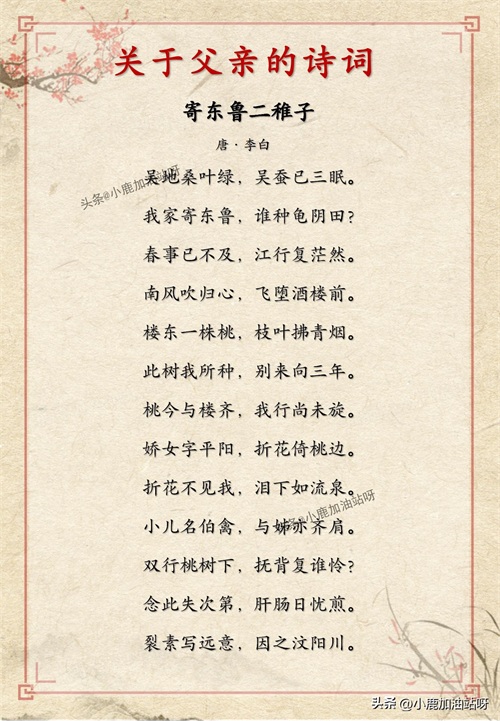 关于父亲的诗词
寄东鲁二稚子
唐·李白
头条@小鹿加油站呀
吴地桑叶绿，吴蚕已三眠。
我家寄东鲁，谁种龟阴田?
春事已不及，江行复茫然。
南风吹归心，飞堕酒楼前。
楼东一株桃，枝叶拂青烟。
此树我所种，别来向三年。
桃今与楼齐，我行尚未旋。
娇女字平阳，折花倚桃边。
折花不见我，泪下如流泉。
小儿名伯禽，与姊亦齐肩。
头条@小鹿加油站呀
双行桃树下，抚背复谁怜?
念此失次第，肝肠日忧煎。
裂素写远意，因之汶阳川。
头条 @小鹿加油站呀